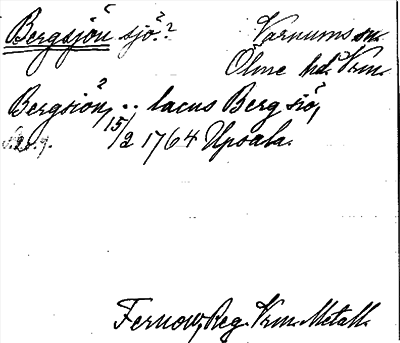 Bergsjön sjö?
Varnums sn.
Ölme hd. Vrm.
Bergsiön, .. lacus Bergsiö,
15/2 1764 Upsala.
Fernow, Reg. Vrm. Metall.